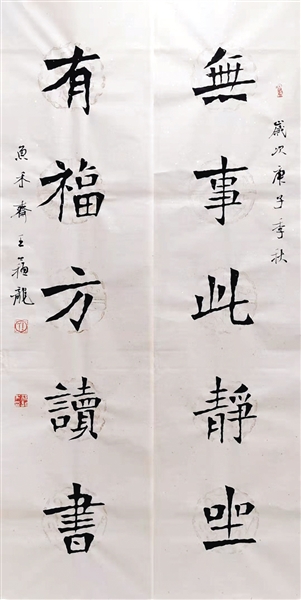 歲次庚子季秋
無事此靜坐
有福方讀書
魚禾齋王福龍